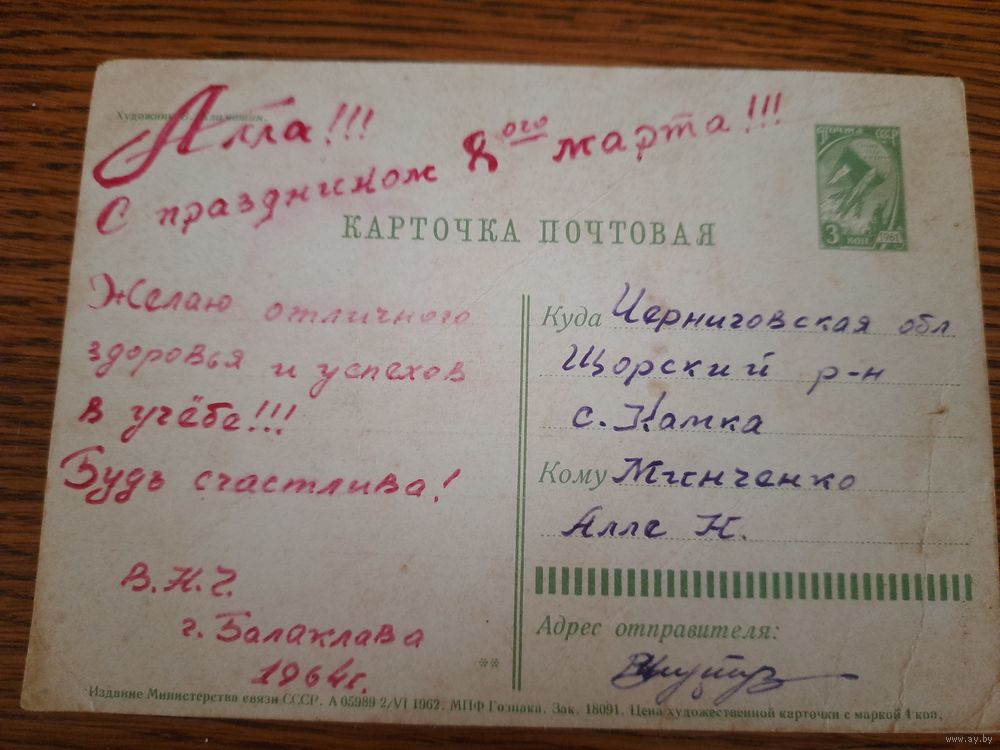 Художник В. Климашин.
Алла!!!
С праздником 8ого марта!!!
КАРТОЧКА ПОЧТОВАЯ
почта СССР
3 коп 1961
Желаю отличного
здоровья и успехов
в учёбе!!!
Будь счастлива!
В.Н.Ч.
г. Балаклава
1964г.
**
Куда Черниговская обл
Щорский р-н
с. Камка
Кому Минченко
Алле Н.
Адрес отправителя:
Издание Министерства связи СССР. А 05989 2/VI 1962. МПФ Гознака. Зак. 18091. Цена художественной карточки с маркой 4 коп.
www.ay.by